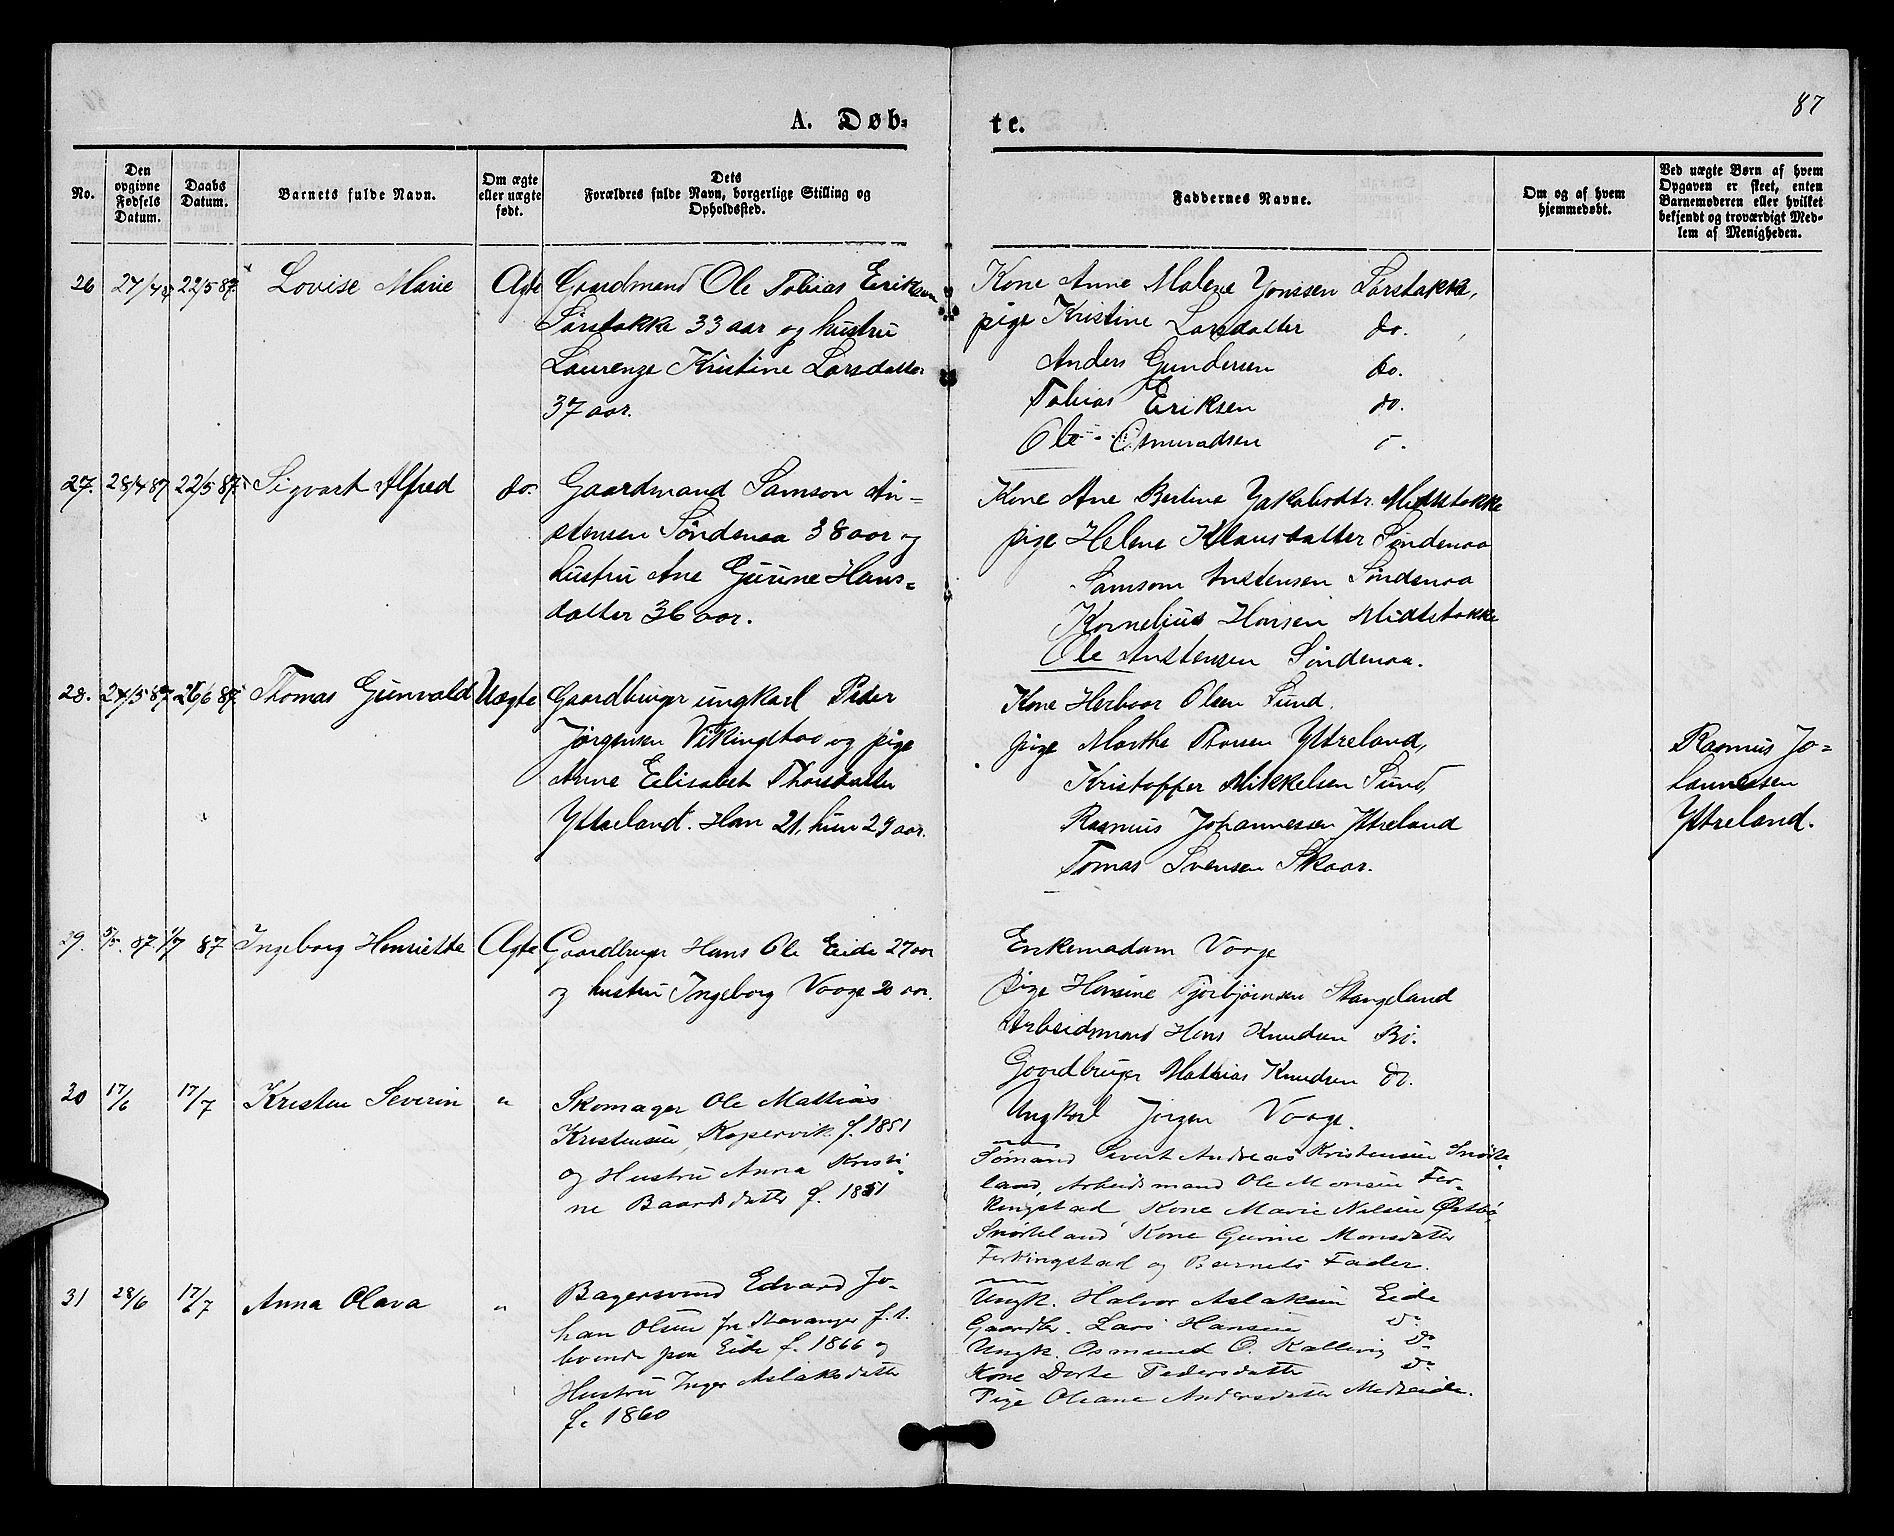 87
A. Døb-
te.
No.
Den opgivne Fødsels Datum.
Daabs Datum.
Barnets fulde Navn.
Om ægte eller uægte født.
Dets Forældres fulde Navn, borgerlige Stilling og Opholdssted.
Faddernes Navne.
Om og af hvem hjemmedøbt.
Ved uægte Børn af hvem Opgaven er skeet, enten Barnemoderen eller hvilket bekjendt og troværdigt Medlem af Menigheden.
26 27/4 87 22/5 87 Lovise Marie Ægte
Gaardmand Ole Tobias Eriksen
Sørstokke 33 aar og hustru
Laurenze Kristine Larsdatter
37 aar.
Kone Anne Malene Yonssen Sørstokke,
pige Kristine Larsdatter do.
Anders Gundersen do.
Tobias Eriksen do.
Ole Osmundsen
27. 28/4 87 22/5 87 Sigvart Alfred do.
Gaardmand Samson An-
stensen Søndenaa 38 aar og
hustru Ane Gurine Hans-
datter 36 aar.
Kone Ane Bertine Yakobsdtr. Midtstokke
pige Helene Klausdatter Søndenaa
Samsom Anstensen Søndenaa
Kornelius Hansen Midtstokke
Ole Anstensen Søndenaa.
28. 24/5 87 26/6 87 Thomas Gunvald Uægte
Gaardbruger ungkarl Peder
Jørgensen Vikingstad og pige
Anne Eelisabet Thorsdatter
Ytreland. Han 21, hun 29 aar.
Kone Herboor Olsen Sund.
pige Marthe Thorsen Ytreland,
Kristoffer Mikkelsen Sund,
Rasmus Johannessen Ytreland
Tomas Svensen Skaar.
Rasmus Jo-
hannessen
Ytreland.
29. 5/5. 87 1/7 87 Ingeborg Henriette Ægte
Gaardbruger Hans Ole Eide 27 aar
og hustru Ingeborg Vaage 20 aar.
Enkemadam Vaage
pige Hansine Torbjørnsen Stangeland
Arbeidsmand Hans Knudsen Bø.
Gaardbruger Mathias Knudsen do.
Ungkarl Jørgen Vaage.
30 17/6 17/7 Kristen Severin "
Skomager Ole Mathias
Kristensen, Kopervik f. 1851
og Hustru Anna Kristi-
ne Baardsdatter f. 1851
Sømand Sivert Andreas Kristensen Snørte-
land, Arbeidsmand Ole Monsen Fer-
kingstad Kone Marie Nilsen Østbø
Snørteland, Kone Gurine Monsdatter
Ferkingstad og Barnets Fader.
31 28/6 17/7 Anna Olava "
Bagersvend Edvard Jo-
han Olsen fra Stavanger f. t.
boende paa Eide f. 1866 og
Hustru Inger Aslaksdatter
f. 1860
Ungk. Halvor Aslaksen Eide
Gaardbr. Lars Hansen do
Ungk. Osmund O. Kallevig do
Kone Dorte Pedersdatter do
Pige Oleane Andersdatter Medeide.